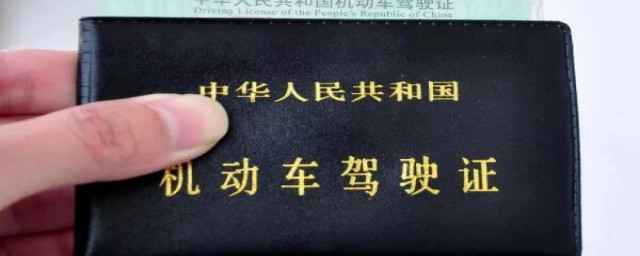 中华人民共和国机动车驾驶证
Driving License of the People's Republic of China
中华人民共和国
机动车驾驶证